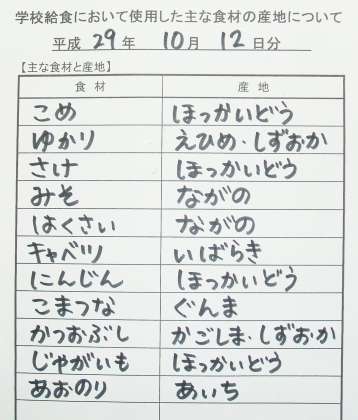 学校給食において使用した主な食材の産地について
平成 29 年 10 月 12 日分
【主な食材と産地】
食材 産地
こめ ほっかいどう
ゆかり えひめ・しずおか
さけ ほっかいどう
みそ ながの
はくさい ながの
キャベツ いばらき
にんじん ほっかいどう
こまつな ぐんま
かつおぶし かごしま・しずおか
じゃがいも ほっかいどう
あおのり あいち